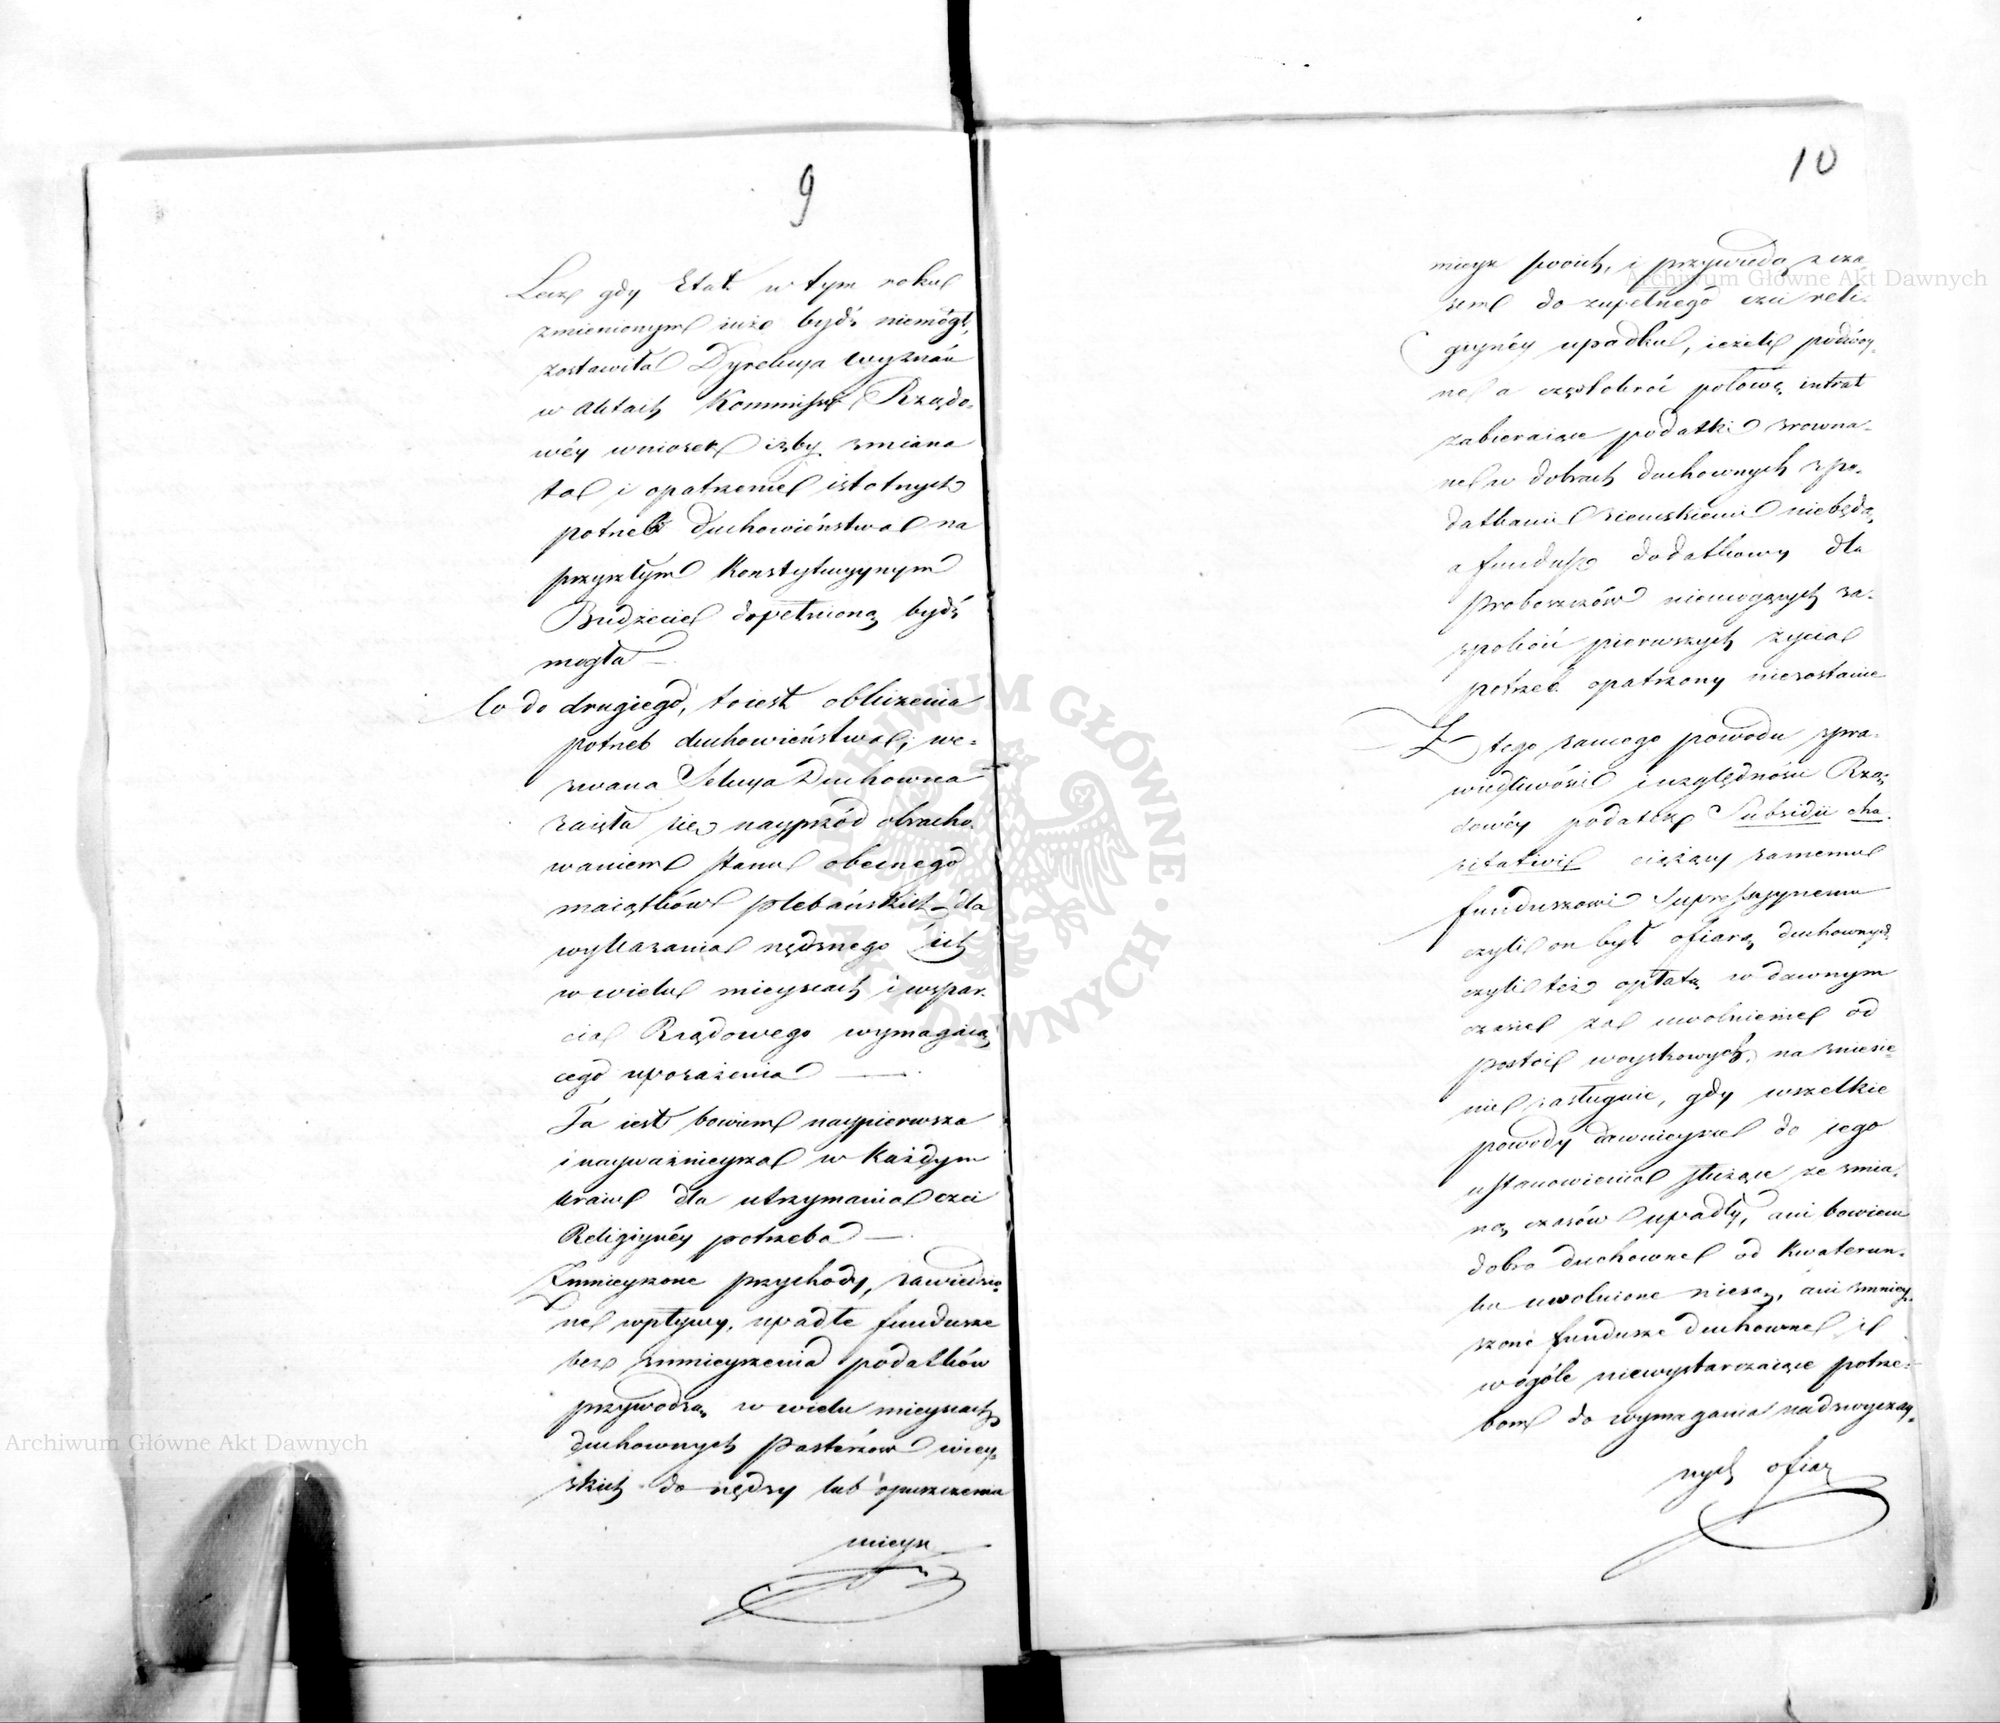 9
Lecz gdy Etat w tym roku
zmienionym iuż bydź niemógł,
zostawiła Dyrekcya Wyznań
w Aktach Kommissyi Rządo-
wéy wniosek iżby zmiana
ta i opatrzenie istotnych
potrzeb Duchowieństwa na
przyszłym Konstytucyynym
Budżecie dopełnioną bydź
mogła —
Co do drugiego, to iest obliczenia
potrzeb duchowieństwa, we-
zwana Sekcya Duchowna
zaięła się nayprzód obracho-
waniem stanu obecnego
maiątków plebańskich dla
wykazania nędznego ich
w wielu mieyscach i wspar-
cia Rządowego wymagaią-
cego uposażenia —
Ta iest bowiem naypierwsza
i nayważnieysza w każdym
kraiu dla utrzymania czci
Religiynéy potrzeba —
Zmnieyszone przychody, zawiedzio-
ne wpływy, upadłe fundusze
bez zmnieyszenia podatków
przywodzą w wielu mieyscach
duchownych Pasterzow wiey-
skich do nędzy lub opuszczenia
mieysc
10
mieysc swoich, i przywiedą z cza-
sem do zupełnego czci reli-
giynéy upadku, ieżeli podwóy-
ne a częstokroć połowę intrat
zabieraiące podatki zrowna-
ne w dobrach duchownych z po-
datkami ziemskiemi niebędą,
a fundusz dodatkowy dla
Proboszczów niemogących za-
spokoić pierwszych życia
potrzeb opatrzony niezostanie
Z tego samego powodu spra-
wiedliwości i względności Rzą-
dowéy podatek Subsidii cha-
ritativi ciążący samemu
funduszowi Suppressyynemu
czyli on był ofiarą duchownych,
czyli też opłatą w dawnym
czasie za uwolnienie od
postoi woyskowych, na zniesie-
nie zasługuie, gdy wszelkie
powody dawnieysze do iego
ustanowienia służące ze zmia-
ną czasów upadły, ani bowiem
dobra duchowne od kwaterun-
ku uwolnione niesą, ani zmniey-
szone fundusze duchowne i
w ogóle niewystarczaiące potrze-
bom do wymagania nadzwyczay-
nych ofiar
Archiwum Główne Akt Dawnych
Archiwum Główne Akt Dawnych
ARCHIWUM GŁÓWNE AKT DAWNYCH